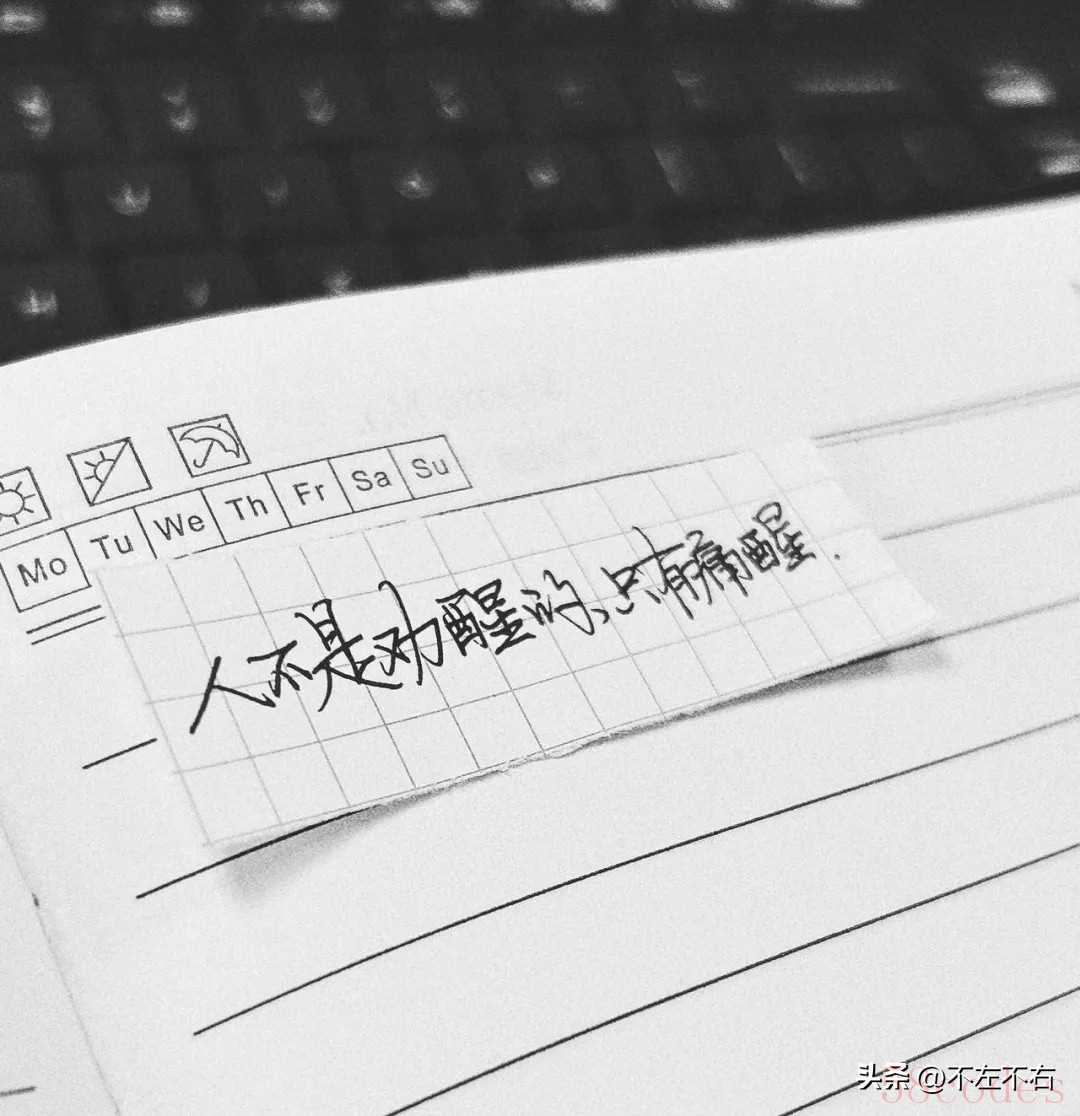 Mo Tu We Th Fr Sa Su
人不是劝醒的、只有痛醒.
头条 @不左不右
58codes